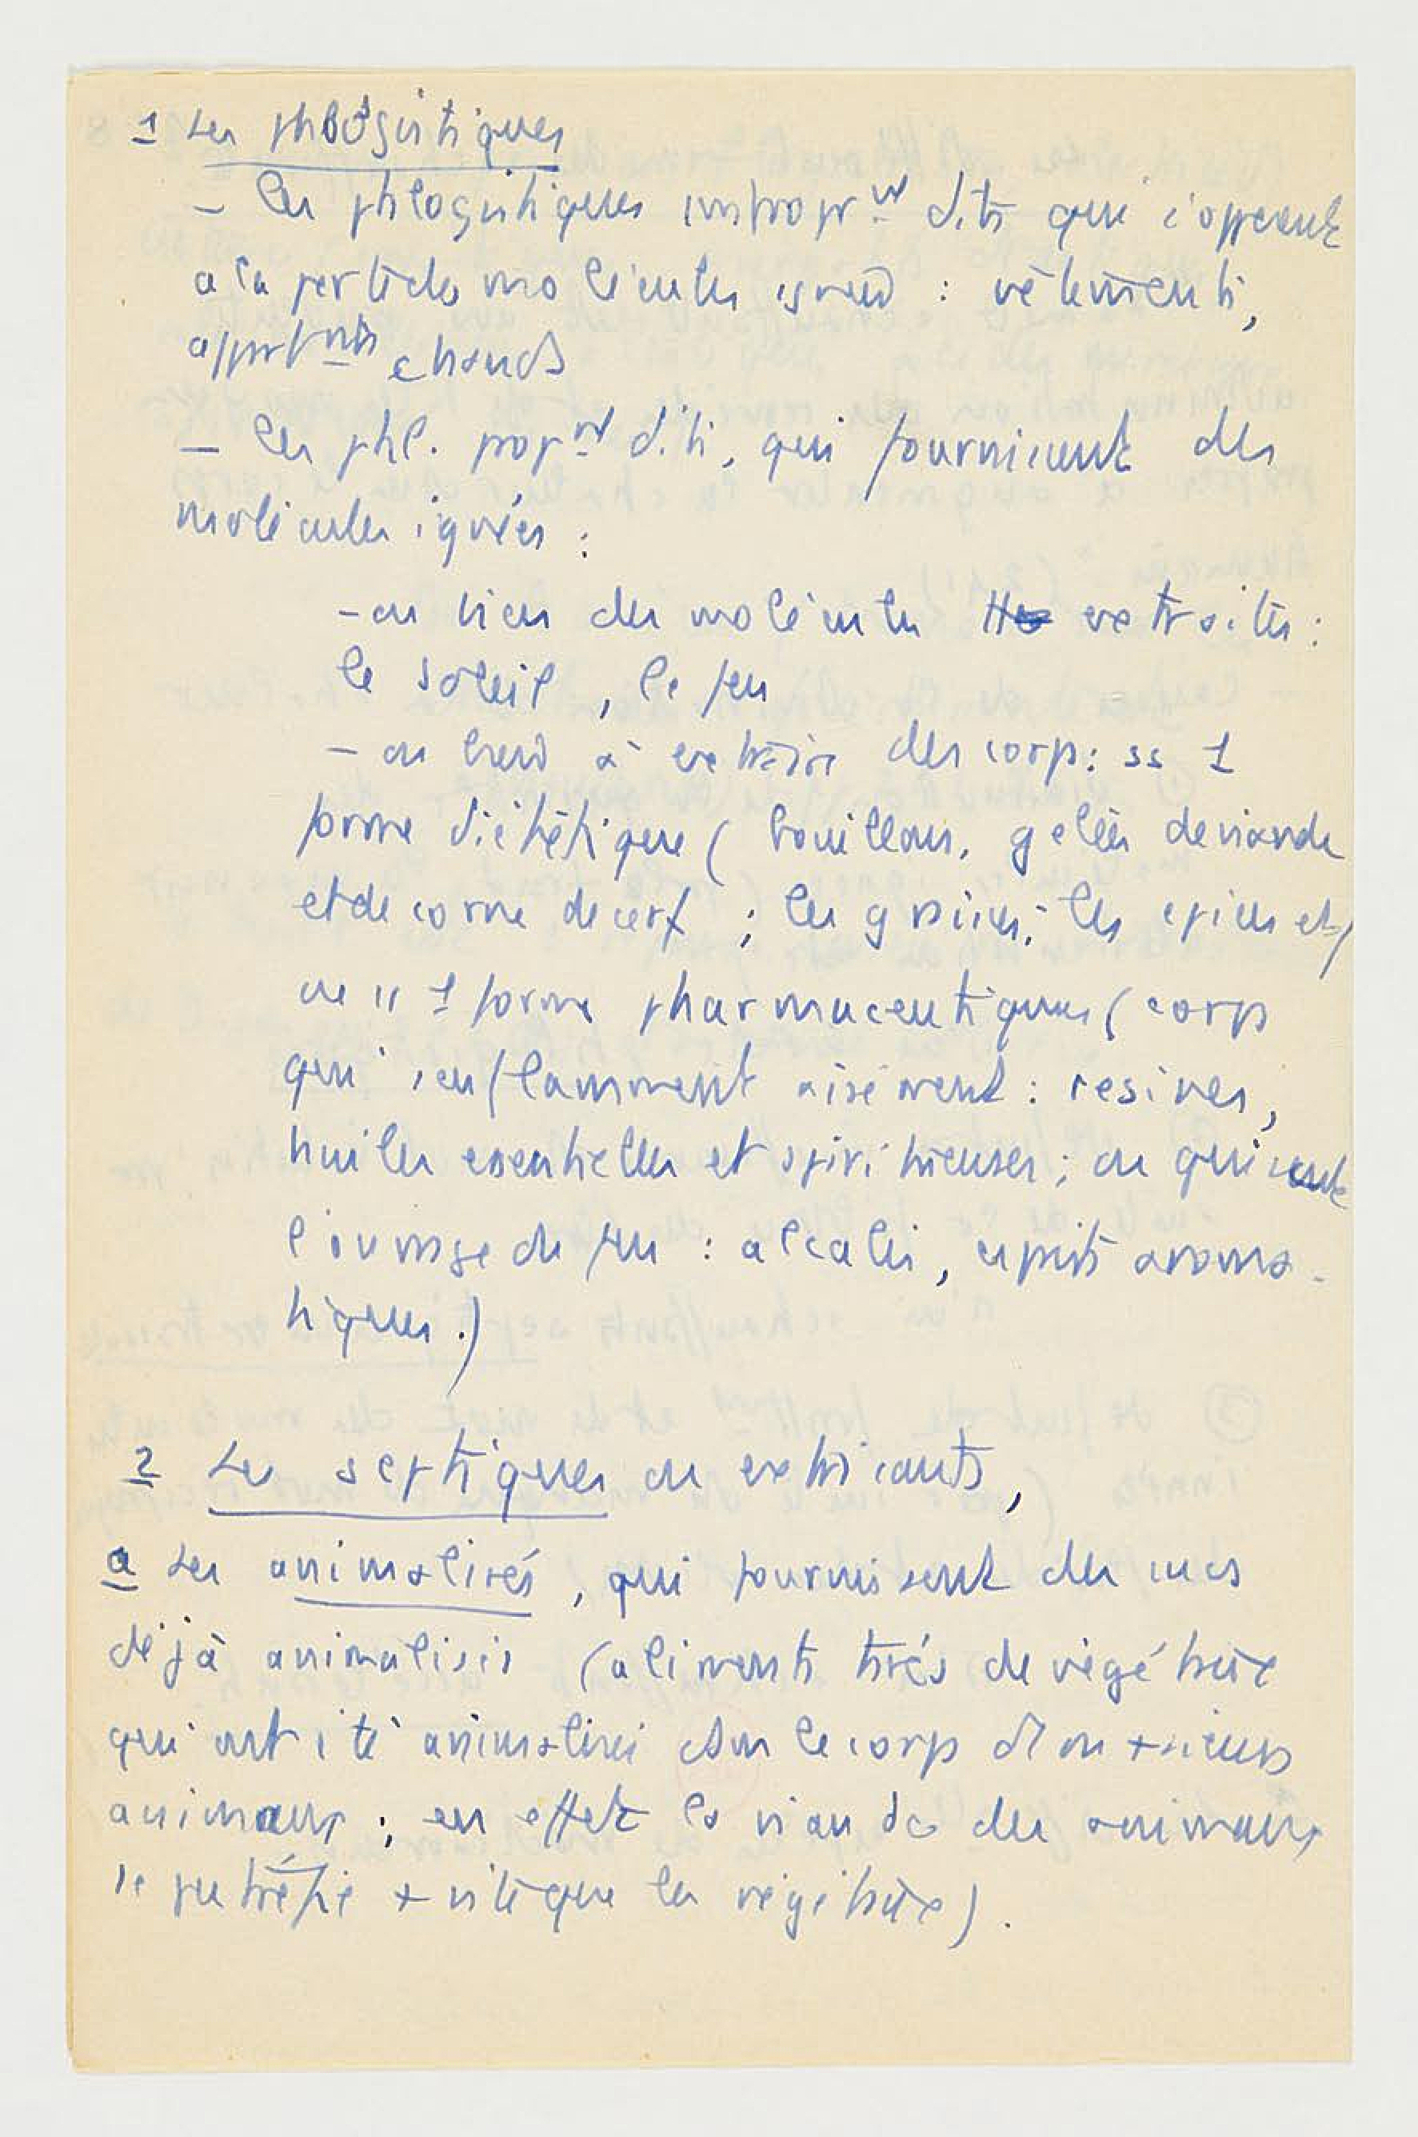 1 Les phlogistiques
– les phlogistiques impropr^nt dits qui s'opposent
a la perte des molécules ignées : vêtements,
appart^mts chauds
– les phl. propr^nt dits, qui fournissent des
molécules ignées :
– ou bien des molécules extraites :
le soleil, le feu
– ou bien à extraire des corps : ss 1
forme diététique ( bouillons, gelées de viande
et de corne de cerf ; les graisses ; les épices etc)
ou ss 1 forme pharmaceutiques ( corps
qui s'enflamment aisément : resines,
huiles essentielles et spiritueuses ; ou qui sont
l'ouvrage du feu : alcalis, esprits aroma-
tiques.)
2 Les septiques ou extricants,
a Les animalisés, qui fournissent des sucs
déjà animalisés (aliments tirés de végétaux
qui ont été animalisés dans le corps d'1 ou +sieurs
animaux ; en effet la viande des animaux
se putréfie + vite que les végétaux).